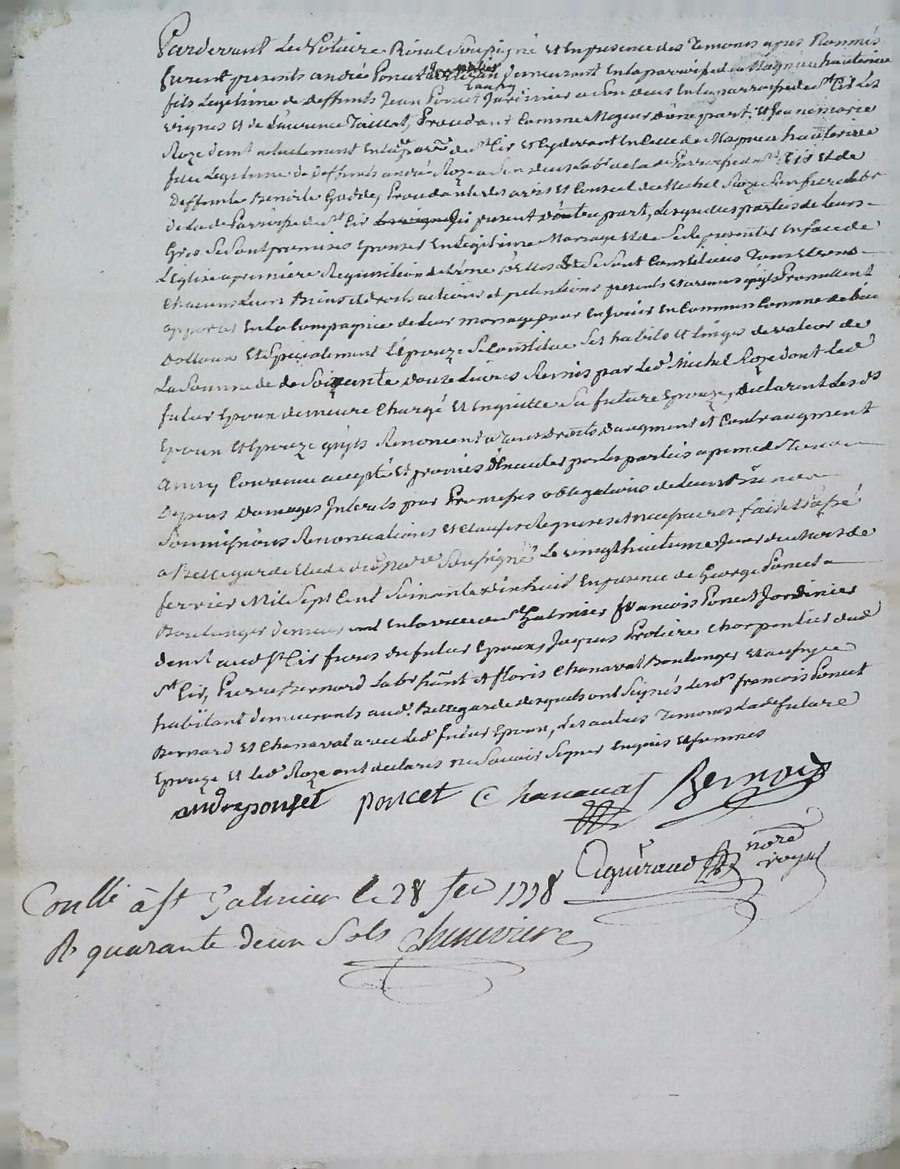 Pardevant Le Notaire Roial Soussigné et En presence des Temoins apres Nommés
furent presents andré Poncet demeurant En la parroisse de Magnieu hauterive
fils Legitime de deffunts Jean Poncet Jardinier a Son deces En la parroisse de St Cir Les
vignes et de Laurence Taillot, Procedant Comme Majeur d'une part, Et Jeanne marie
Roze demt actuellement En la de St Cir et Cydevant En Celle de Magnieu hauterive
fille Legitime de deffunts andré Roze a Son deces Labr de la de Parroisse de St Cir et de
deffunte Benoite Procedante de avis et Conseil de Michel Roze Son frere Labr
de lad Parroisse de St Cir ici present d'autre part, Lesquelles parties de Leurs
Grés Se Sont promises Epouser En Legitime Mariage et de Se Representer En face de
L'Eglise a premiere Requisition de L'une d'Elles Se Sont Constitués Tous Leurs
Chacuns Leurs Biens et droits actions et petentions presents et avenirs qu'ils Promettent
apporter En La Compagnie de Leur mariage pour En Jouir En Commun Comme de bien
dottaux Et Specialement L'Epouze Se Constitue Ses habits et linge de valeur de
La Somme de de Soixante douze Livres Remis par Led Michel Roze dont Led
futur Epoux demeure Chargé Et En quitte Sa future Epouze, declarent Les ds
Epoux et Epouze qu'ils Renoncent a Tous droits d'augment et Contreaugment
ainsy Convenu accepté Et promis observer par les parties a peine de Tous
depens domages Interets par Promesses obligations de Leurs Biens
Soumissions Renonciations et Clauses Requises et necessaires fait et passé
a Bellegarde Etude du Nore Soussigné Le vingt huitieme Jour du Mois de
fevrier Mil Sept Cent Soixante dix huit En presence de George Poncet
Boulanger demeurant En la ville de St Galmier françois Poncet Jardinier
demt aud St Cir freres du futur Epoux, Jacques Protiere Charpentier dud
St Cir, Pierre Bernard Labr hant & floris Chanavat Boulanger Et aubergiste
habitant demeurants aud Bellegarde desquels ont Signés Led françois Poncet
Bernard et Chanavat avec Led futur Epoux, Les autres Temoins Lad future
Epouze Et Led Roze ont declarés ne Savoir Signer Enquis Et Sommés
andre ponset poncet Chanavat Bernard
nore royal
Conllé à St Galmier le 28 fev 1778
R quarante deux Sols Cheneviere